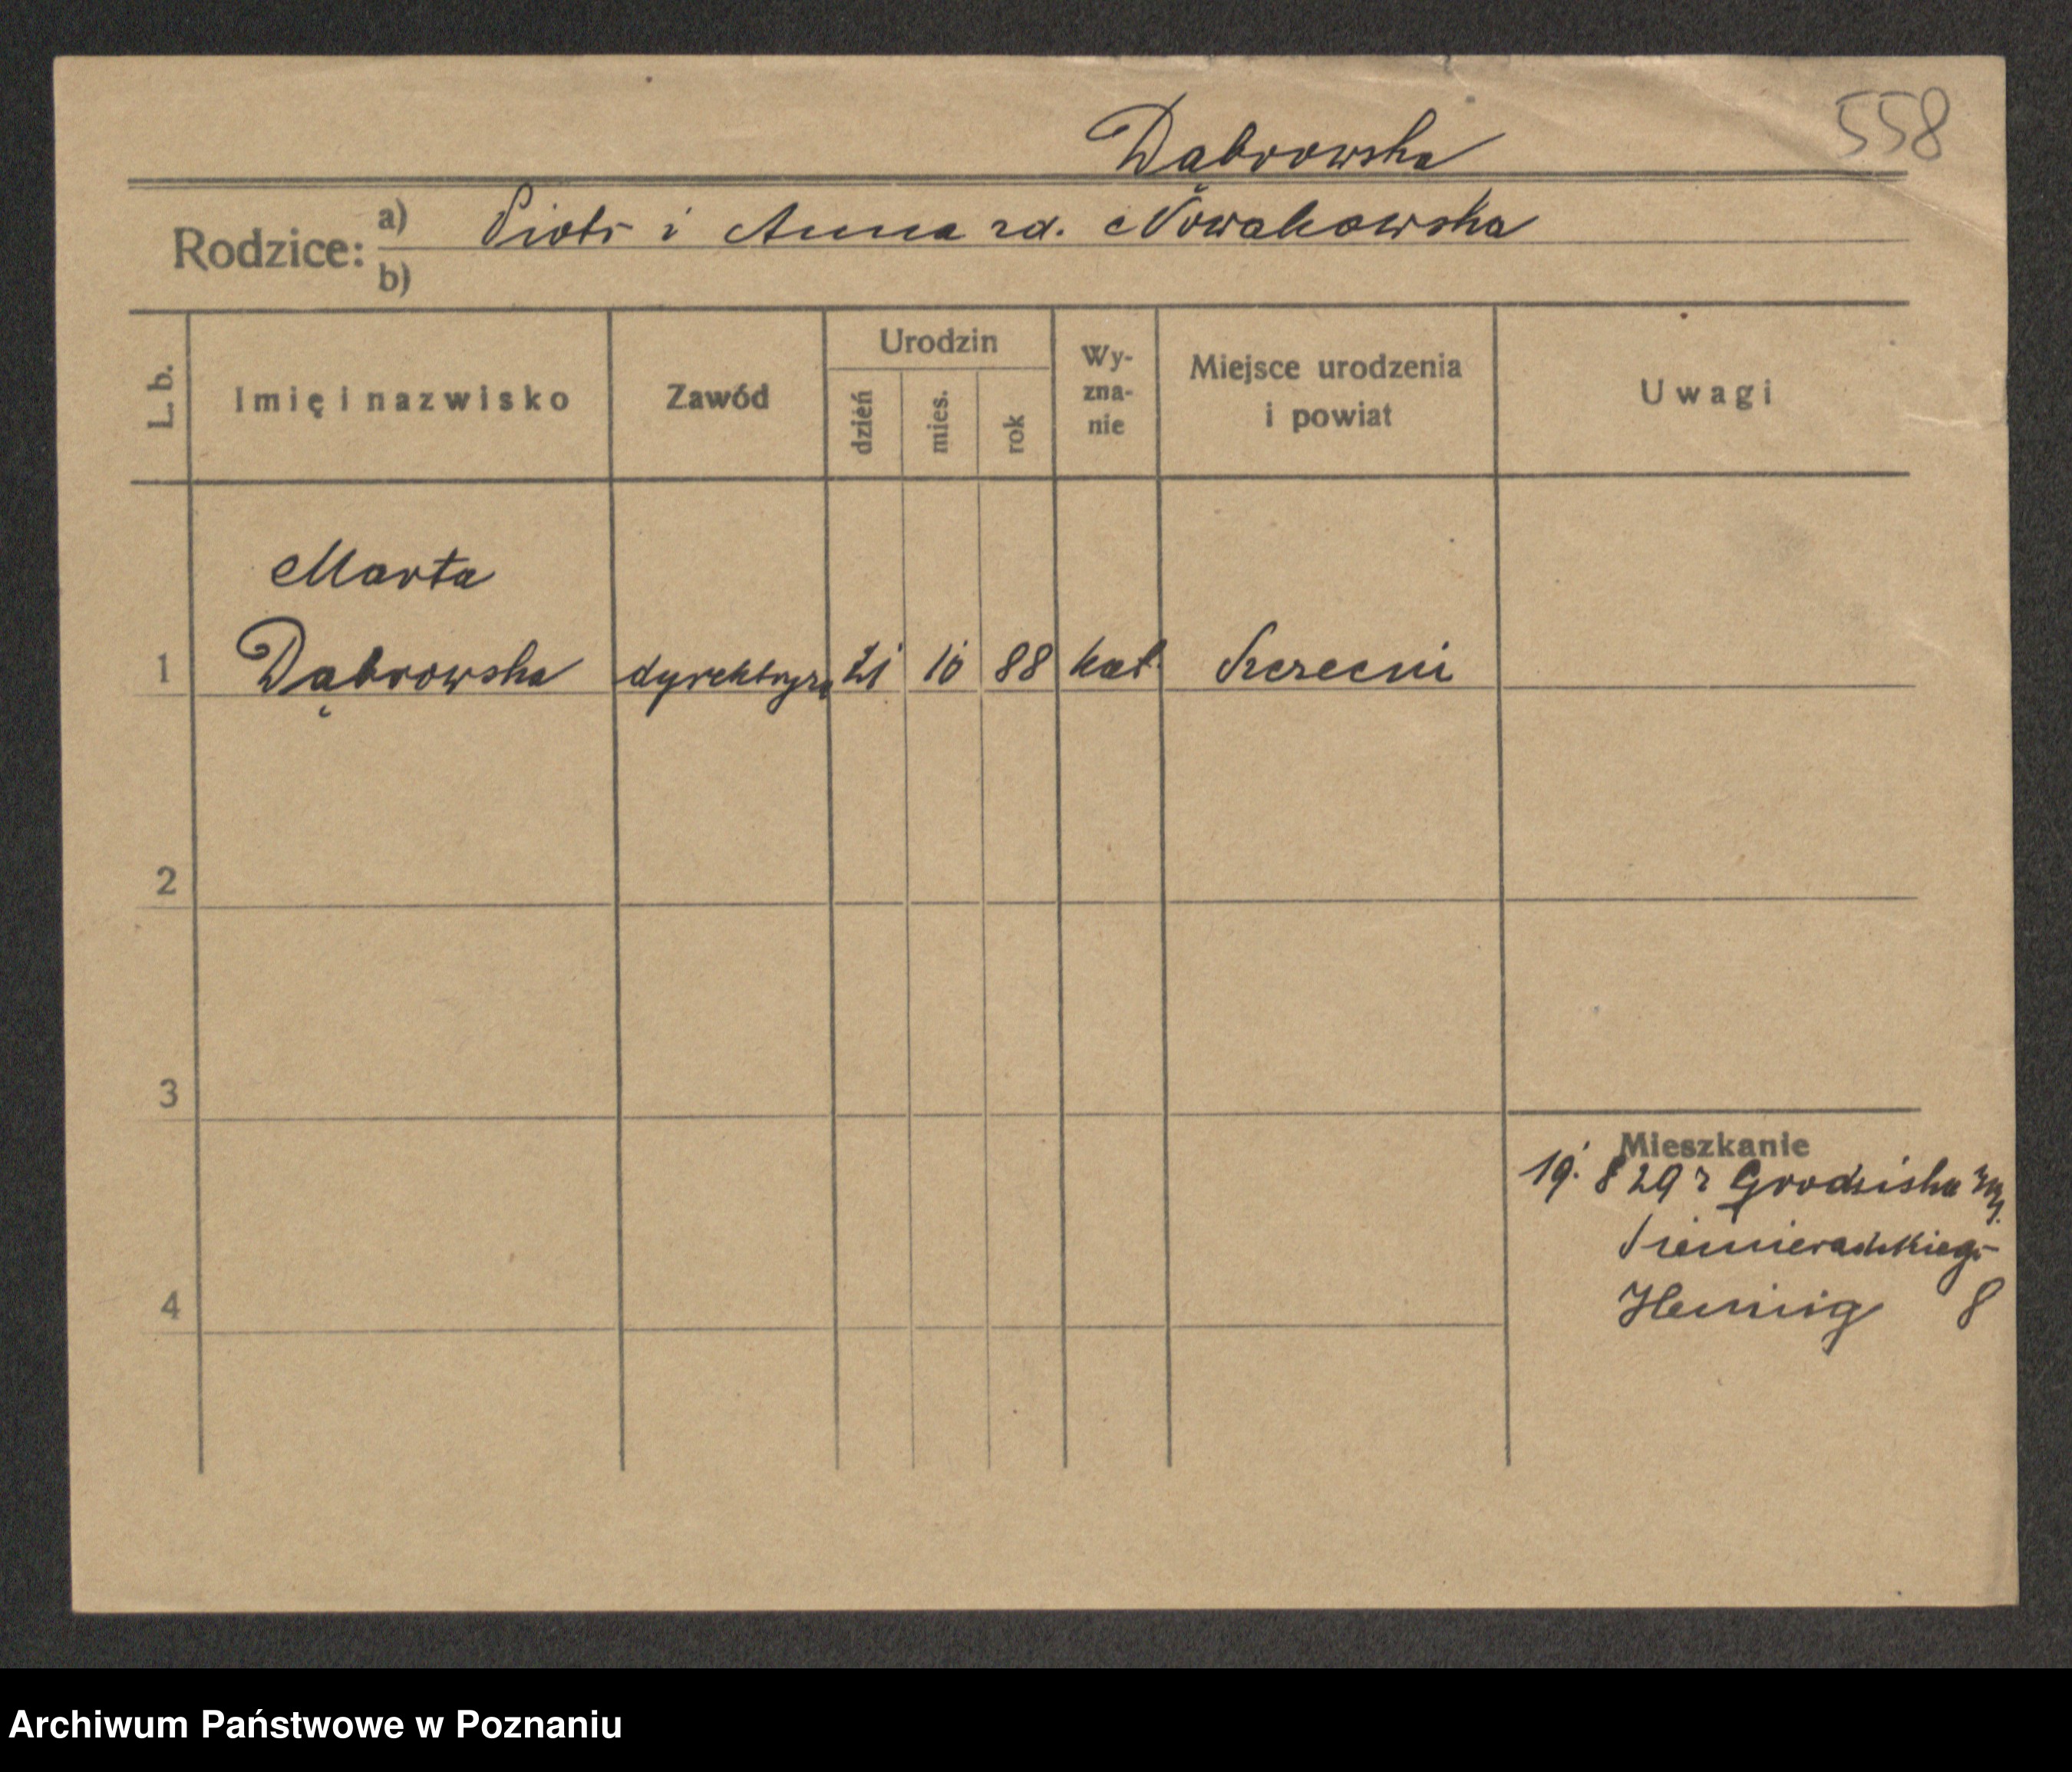 558
Dąbrowska
Rodzice: a) Piotr i Anna zd. Nowakowska
b)
L. b. Imię i nazwisko Zawód Urodzin dzień mies. rok Wy-zna-nie Miejsce urodzenia i powiat Uwagi
Marta
1 Dąbrowska 21 10 88 kat.
2
3
Mieszkanie
19. 8 29 z Grodziska
Siemieradzkiego
4 Hennig 8
Archiwum Państwowe w Poznaniu